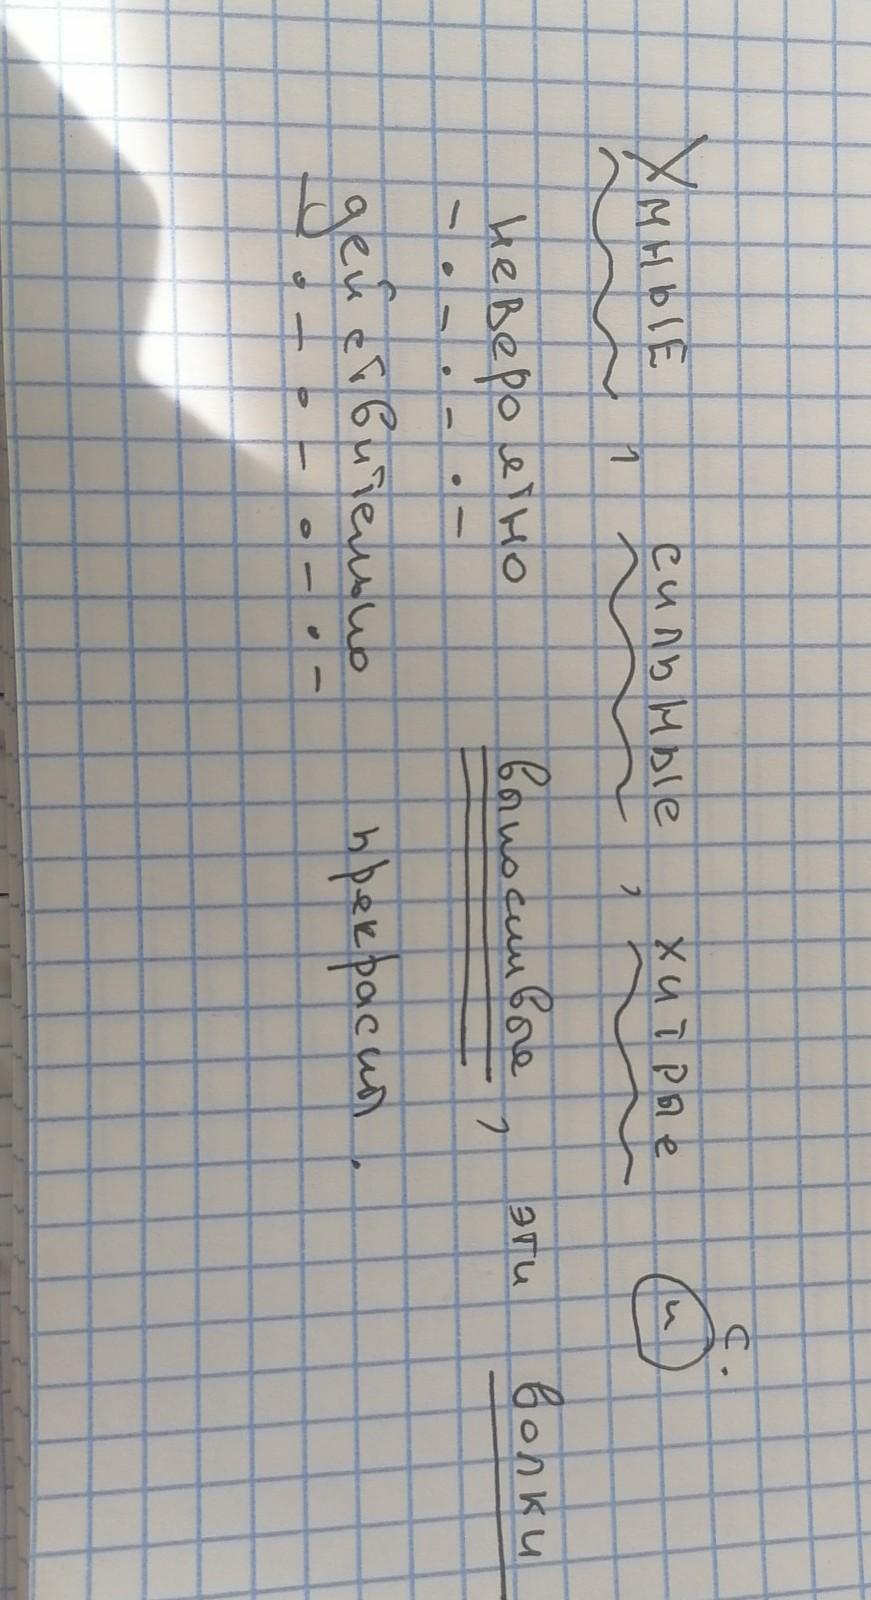 Умные, сильные, хитрые и с.
невероятно выносливые, эти волки
действительно прекрасны.